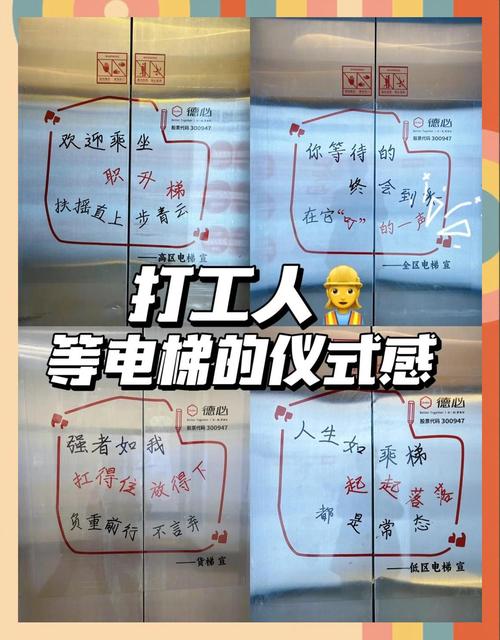 德必
股票代码 300947
欢迎乘坐
职升梯
扶摇直上 步青云
——高区电梯 宣
德必
股票代码 300947
你等待的
终会到来
在它“叮”的一声
——全区电梯 宣
打工人👷‍♀️
等电梯的仪式感
德必
股票代码 300947
强者如我
扛得住 放得下
负重前行 不言弃
——货梯 宣
德必
股票代码 300947
人生如乘梯
起起落落
都是常态
——低区电梯 宣